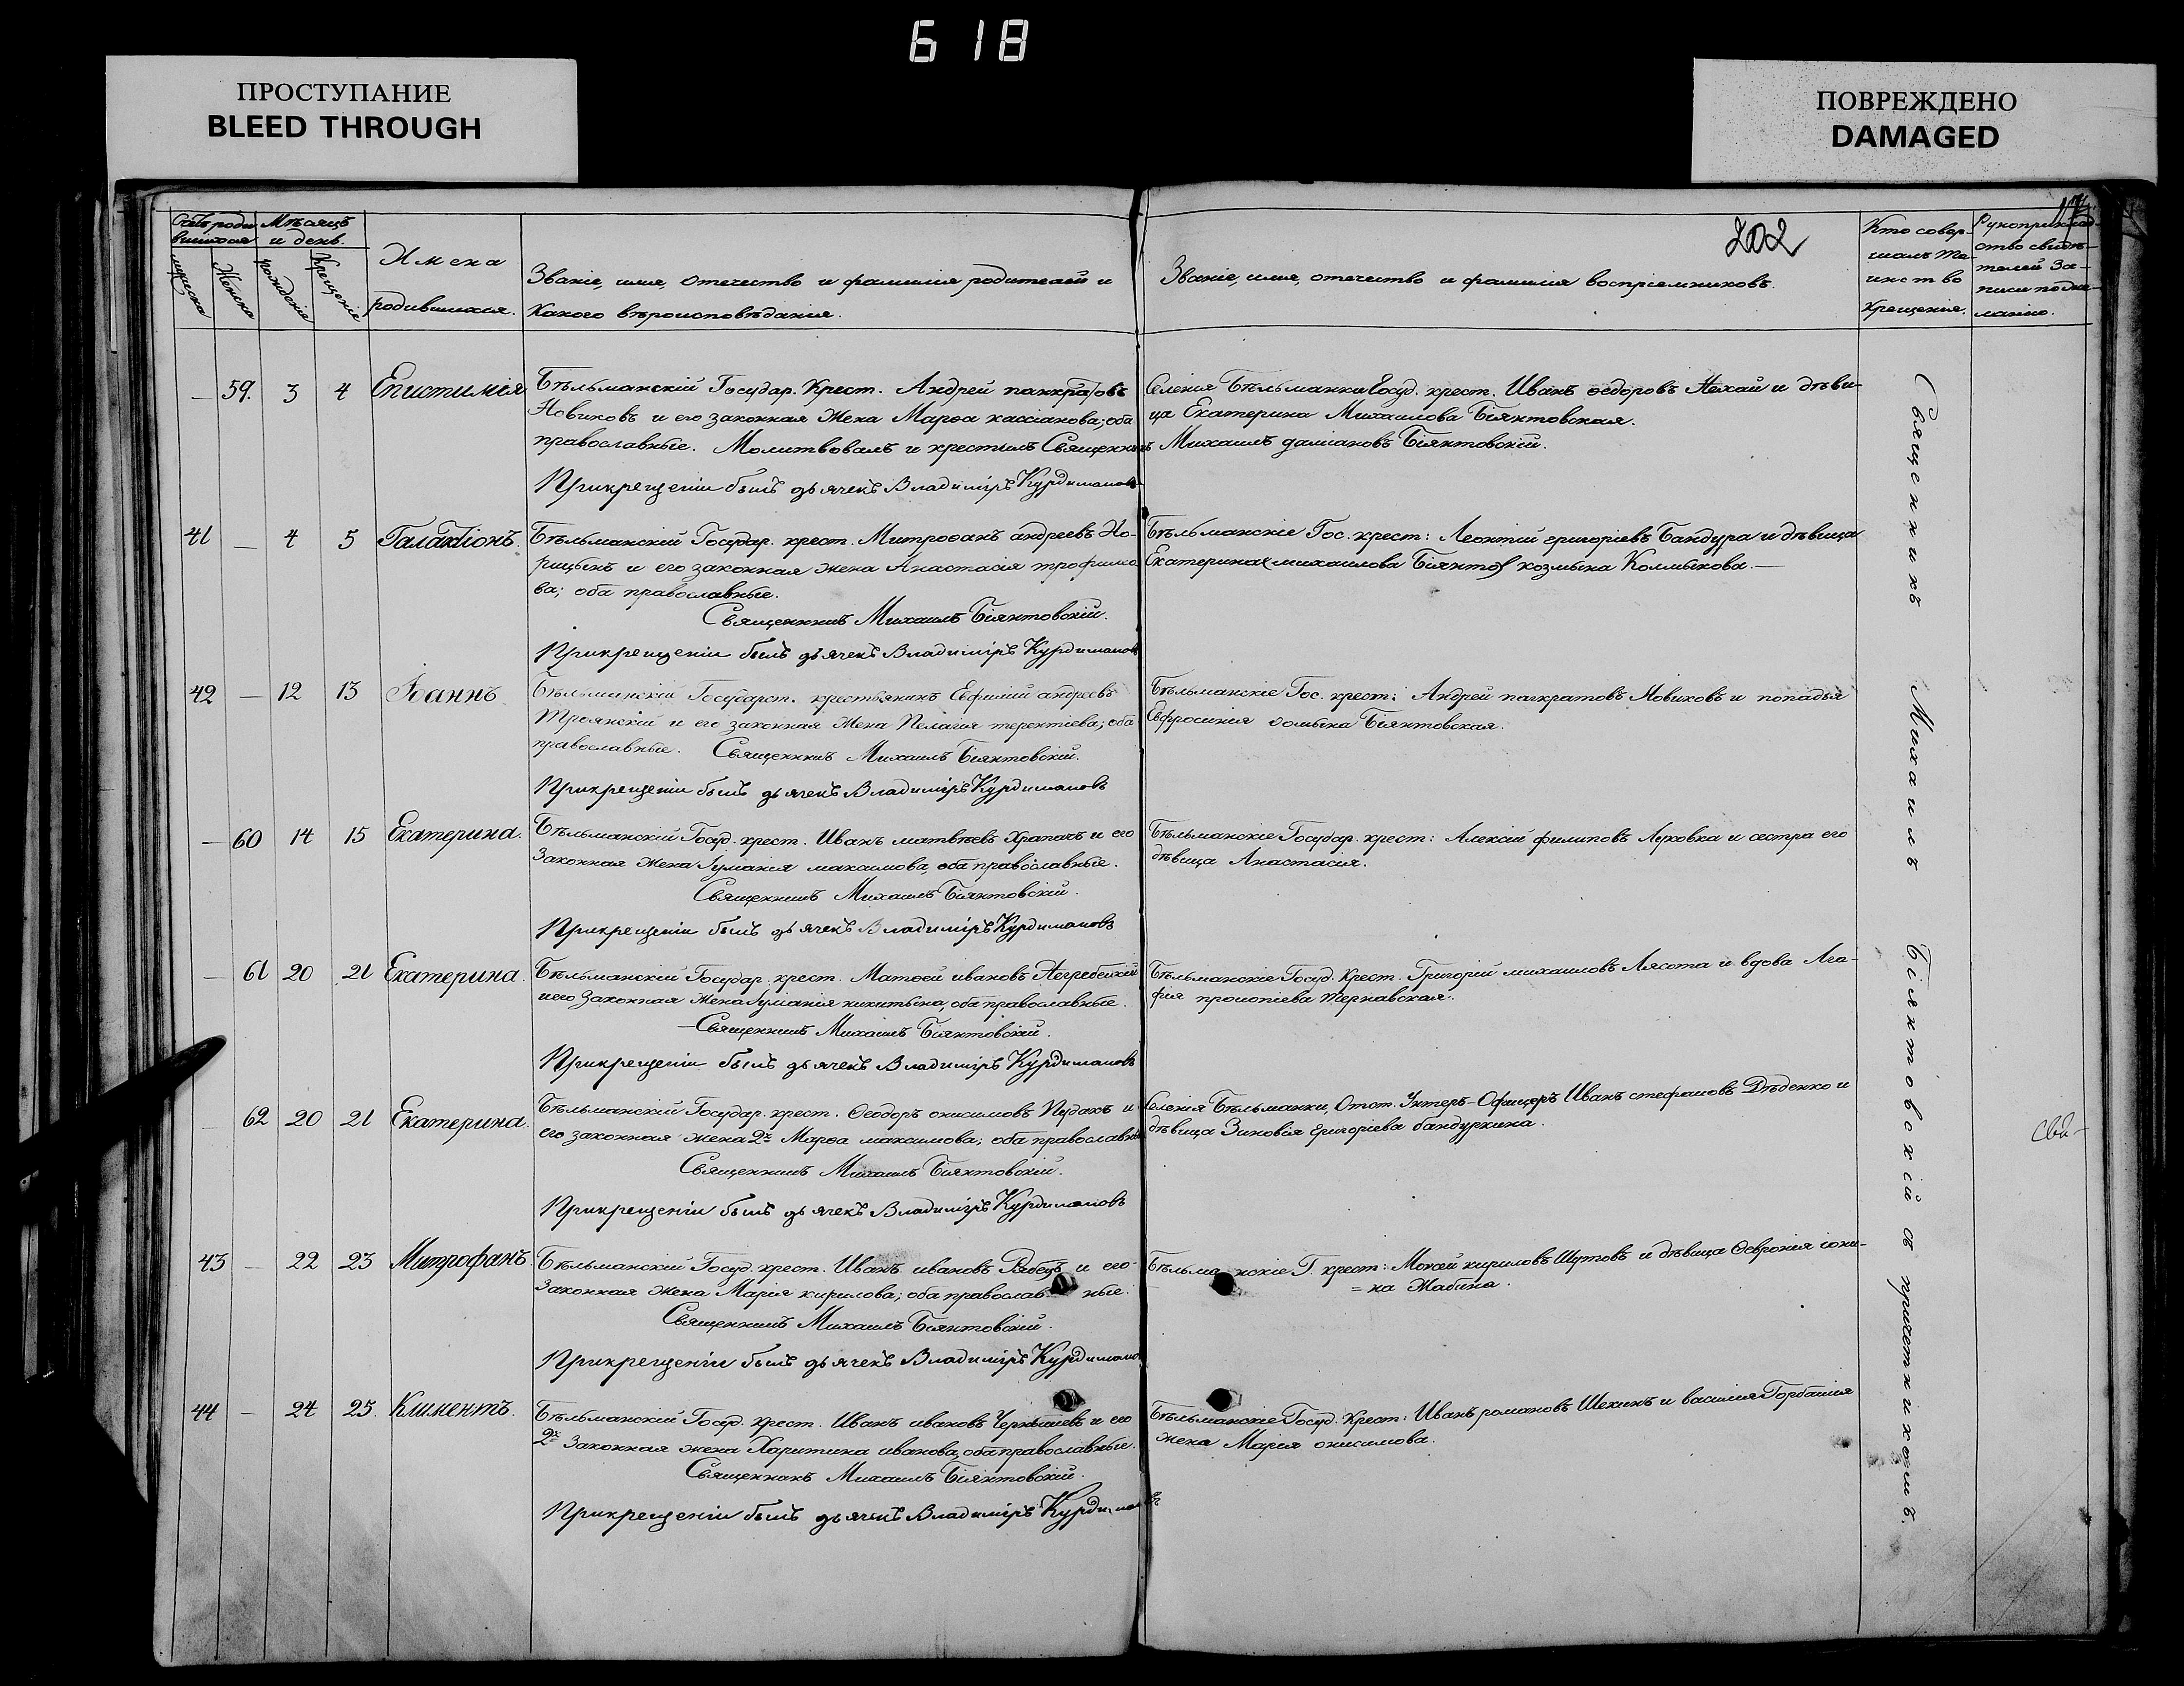 618
ПРОСТУПАНИЕ
BLEED THROUGH
ПОВРЕЖДЕНО
DAMAGED
202
Мѣсяцъ
и день.
Женска
рожденія
Крещенія
Имена
родившихся.
Званіе, имя, отечество и фамилія родителей и
какого вѣроисповѣданія.
Званіе, имя, отечество и фамилія воспріемниковъ.
Кто совер-
шалъ та-
инство
крещенія.
59. 3 4 Епистимія
Бѣльманскій Государ. Крест. Андрей панкратовъ
Новиковъ и его законная жена Марѳа кассіанова; оба
православные. Молитвовалъ и крестилъ Священникъ
Прикрещеніи былъ дьячекъ Владиміръ Курдимановъ
Селенія Бѣльманки Госуд. крест. Иванъ ѳедоровъ Нехай и дѣви-
ца Екатерина Михаилова Біянтовская.
Михаилъ даміановъ Біянтовскій.
41 — 4 5 Галактіонъ.
Бѣльманскій Государ. крест. Митрофанъ андреевъ Но-
рицынъ и его законная жена Анастасія трофимо
ва; оба православные.
Священникъ Михаилъ Біянтовскій.
Прикрещеніи былъ дьячекъ Владиміръ Курдимановъ
Бѣльманскіе Гос. крест: Леонтій григоріевъ Бандура и дѣвица
Екатерина (михаилова Біянто) козмына Колмыкова.—
42 — 12 13 Іоаннъ
Бѣльманскій Государст. крестьянинъ Евфимій андреевъ
Троянскій и его законная жена Пелагія терентіева; оба
православные. Священникъ Михаилъ Біянтовскій.
Прикрещеніи былъ дьячекъ Владиміръ Курдимановъ
Бѣльманскіе Гос. крест: Андрей панкратовъ Новиковъ и попадья
Евфросинія ѳомына Біянтовская.
— 60 14 15 Екатерина.
Бѣльманскій Госуд. крест. Иванъ матвѣевъ Храпачъ и его
Законная жена Іуманія максимова, оба православные.
Священникъ Михаилъ Біянтовскій.
Прикрещеніи былъ дьячекъ Владиміръ Курдимановъ
Бѣльманскіе Государ. крест: Алексій филиповъ Луковка и сестра его
дѣвица Анастасія.
— 61 20 21 Екатерина.
Бѣльманскій Государ. крест. Матѳей ивановъ Негребецкій
и его Законная жена Іуманія никитына, оба православные.
Священникъ Михаилъ Біянтовскій.
Прикрещеніи былъ дьячекъ Владиміръ Курдимановъ
Бѣльманскіе Госуд. Крест. Григорій михаиловъ Лясота и вдова Ага-
фія прокопіева Тернавская.
62 20 21 Екатерина.
Бѣльманскій Государ. крест. Ѳеодоръ онисимовъ Пудакъ и
его законная жена 2я Марѳа максимова; оба православны
Священникъ Михаилъ Біянтовскій.
Прикрещеніи былъ дьячекъ Владиміръ Курдимановъ
Селенія Бѣльманки, Отст. Унтеръ-Офицеръ Иванъ стефановъ Дѣденко и
дѣвица Зиновія григоріева бандуркина.
43 — 22 23 Митрофанъ.
Бѣльманскій Госуд. крест. Иванъ ивановъ Рябецъ и его
Законная жена Марія кирилова; оба православные.
Священникъ Михаилъ Біянтовскій.
Прикрещеніи былъ дьячекъ Владиміръ Курдиманов
Бѣльманскіе Г. крест: Моисей кириловъ Шутовъ и дѣвица Ѳевронія іони-
= на Жабина.
44 — 24 25. Климентъ.
Бѣльманскій Госуд. крест. Иванъ ивановъ Чернышевъ и его
2я Законная жена Харитина иванова, оба православные.
Священникъ Михаилъ Біянтовскій.
Прикрещеніи былъ дьячекъ Владиміръ Курдимановъ
Бѣльманскіе Госуд. Крест: Иванъ романовъ Шехинъ и василія Горбатія
жена Марія онисимова.
Священникъ Михаилъ Біянтовскій съ причетникомъ.
Сви-